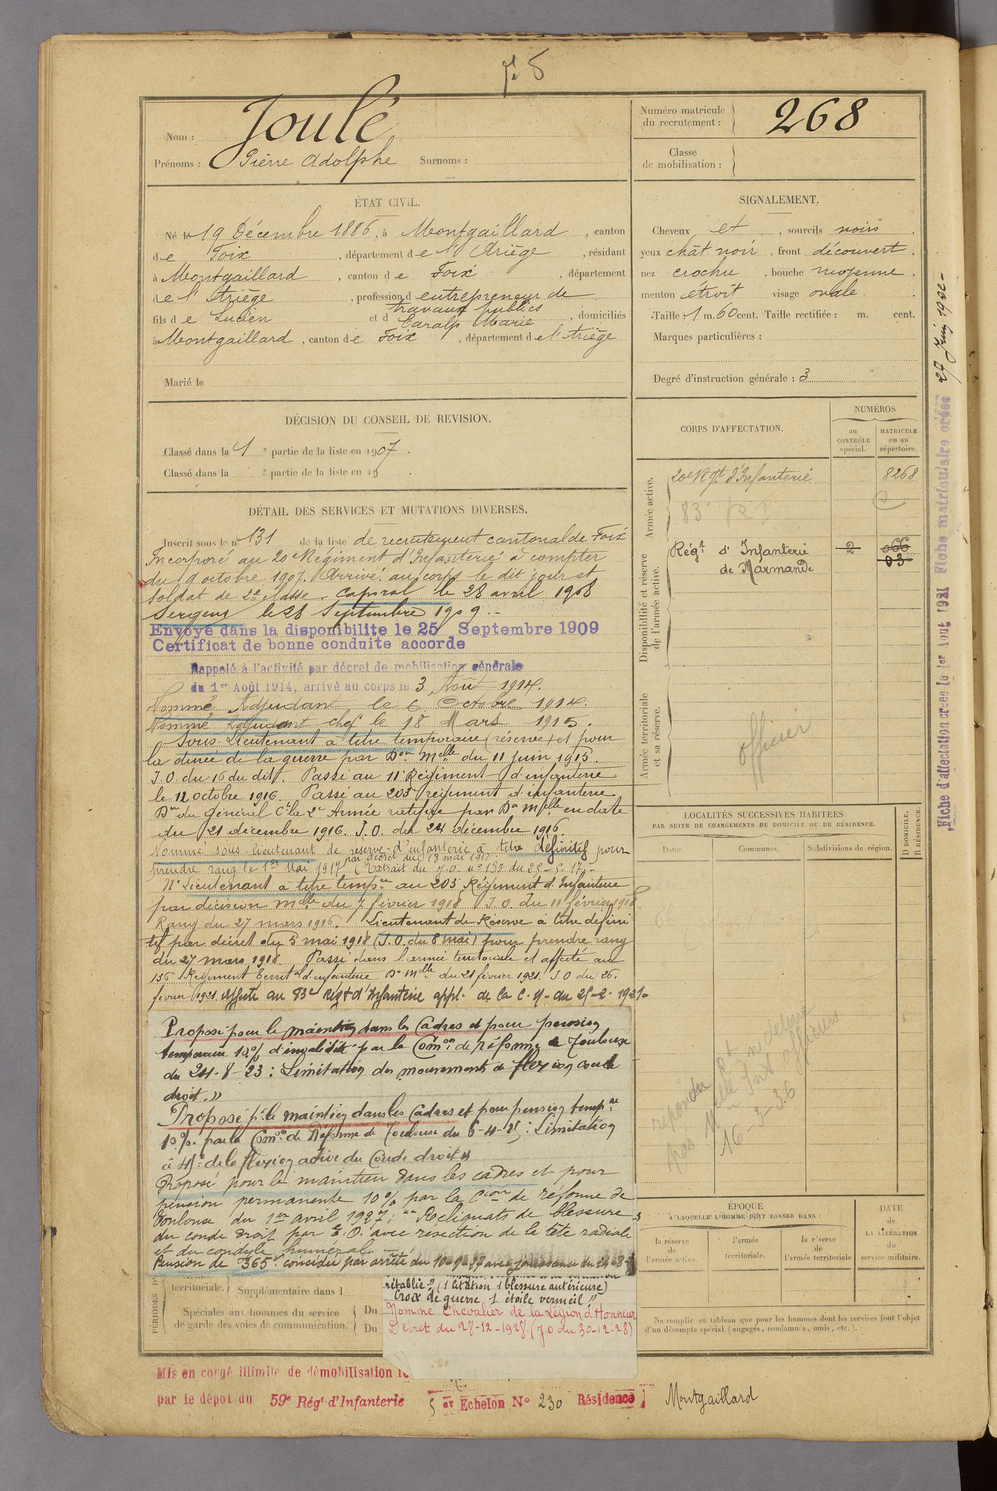 Nom : Joulé
Prénoms : Pierre Adolphe Surnoms :
Numéro matricule du recrutement : 268
Classe de mobilisation :
ÉTAT CIVIL.
Né le 19 Décembre 1886, à Montgaillard, canton
de Foix, département de l'Ariège, résidant
à Montgaillard, canton de Foix, département
de l'Ariège, profession d entrepreneur de
travaux publics
fils de Lucien et d Caralp Marie, domiciliés
à Montgaillard, canton de Foix, département de l'Ariège
Marié le
SIGNALEMENT.
Cheveux et, sourcils noirs
yeux chât noir, front découvert,
nez crochu, bouche moyenne,
menton étroit visage ovale.
Taille : 1 m. 60 cent. Taille rectifiée : m. cent.
Marques particulières :
Degré d'instruction générale : 3
DÉCISION DU CONSEIL DE REVISION.
Classé dans la 1 partie de la liste en 1907.
Classé dans la partie de la liste en 19
DÉTAIL DES SERVICES ET MUTATIONS DIVERSES.
Inscrit sous le n° 131 de la liste de recrutement cantonal de Foix
Incorporé au 20e Régiment d'Infanterie à compter
du 9 octobre 1907. Arrivé au corps le dit jour et
Soldat de 2e classe. Caporal le 28 avril 1908
Sergent le 28 Septembre 1909.
Envoyé dans la disponibilite le 25 Septembre 1909
Certificat de bonne conduite accorde
Rappelé à l'activité par décret de mobilisation générale
du 1er Août 1914, arrivé au corps le 3 Août 1914.
Nommé Adjudant le 6 Octobre 1914.
Nommé Adjudant chef le 18 Mars 1915.
Sous-Lieutenant à titre temporaire (réserve) et pour
la durée de la guerre par Don Mlle du 11 juin 1915.
J.O. du 16 du dit. Passé au 11e Régiment d'infanterie
le 12 octobre 1916. Passé au 205e régiment d'infanterie
Don du Général Ct la 2e Armée ratifiée par Don Mlle en date
du 21 décembre 1916. J.O. du 24 décembre 1916.
Nommé sous lieutenant de réserve d'infanterie à titre définitif pour
prendre rang le 1er Mai 1917 par décret du 18 mai 1917 (Extrait du J.O. n° 137 du
Lieutenant à titre tempre au 205 Régiment d'Infanterie
par décision Mlle du 7 février 1918 J.O. du 11 février 1918
Rang du 27 mars 1916. Lieutenant de Réserve à titre défini
tif par décret du 5 mai 1918 (J.O. du 8 mai) pour prendre rang
du 27 mars 1918. Passé dans l'armée territoriale et affecté au
135e Régiment Territ al d'infanterie Dn Mlle du 21 février 1921. J O du 26
février 1921 affecté au 83e régt d'Infanterie appl. de la C. M. du 25-2-1921.
Proposé pour le maintien dans les Cadres et pour pension
temporaire 10% d'invalidité par la Comon de réforme de Toulouse
du 24-8-23 : Limitation des mouvements de flexion coude
droit."
Proposé pr le maintien dans les Cadres et pour pension tempre
10%. par la Comon de Réforme de Toulouse du 6-4-25 : Limitation
à 45° de la flexion active du Coude droit "
Proposé pour le maintien dans les cadres et pour
pension permanente 10% par la Comon de réforme de
Toulouse du 1er avril 1927, "Reliquats de blessure
du coude droit par E.O. avec résection de la tête radiale
et du condyle huméral
Pension de 365f concédée par arrêté du
rétablie ? (1 citation 1 blessure antérieure)
Croix de guerre 1 étoile vermeil !!
Nommé Chevalier de la Légion d'Honneur
Décret du 28-12-1928 (JO du 30-12-28)
territoriale. Supplémentaire dans l
Spéciales aux hommes du service de garde des voies de communication. Du
Du
CORPS D'AFFECTATION.
NUMÉROS
au CONTRÔLE spécial.
MATRICULE ou au répertoire.
Armée active.
20e Rgt d'Infanterie 8268
83
Disponibilité et réserve de l'armée active.
Régt d'Infanterie de Marmande 2
Armée territoriale et sa réserve.
officier
LOCALITÉS SUCCESSIVES HABITÉES
PAR SUITE DE CHANGEMENTS DE DOMICILE OU DE RÉSIDENCE.
Dates. Communes. Subdivisions de région. D DOMICILE. R RÉSIDENCE.
16-3-36
ÉPOQUE
À LAQUELLE L'HOMME DOIT PASSER DANS :
la réserve de l'armée active.
l'armée territoriale.
la réserve de l'armée territoriale
DATE de LA LIBÉRATION du service militaire.
Ne remplir ce tableau que pour les hommes dont les services font l'objet
d'un décompte spécial (engagés, condamnés, omis, etc.).
Fiche d'affectation créée le 1er Aout 1921 Fiche matriculaire créée 29 Juin 1932
Mis en congé illimité de démobilisation le
par le dépôt du 59e Régt d'Infanterie 5 Echelon N° 230 Résidence Montgaillard